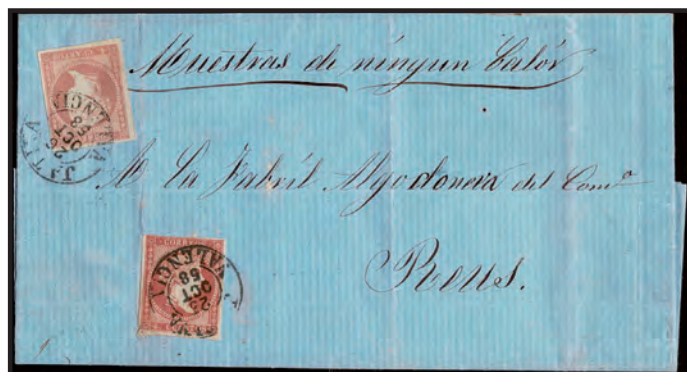 Muestras de ningun Balór
A la Fabril Algodonera del Com.º
Reus.
CORREOS
VALENCIA
26
OCT
58
CORREOS
VALENCIA
25
OCT
58